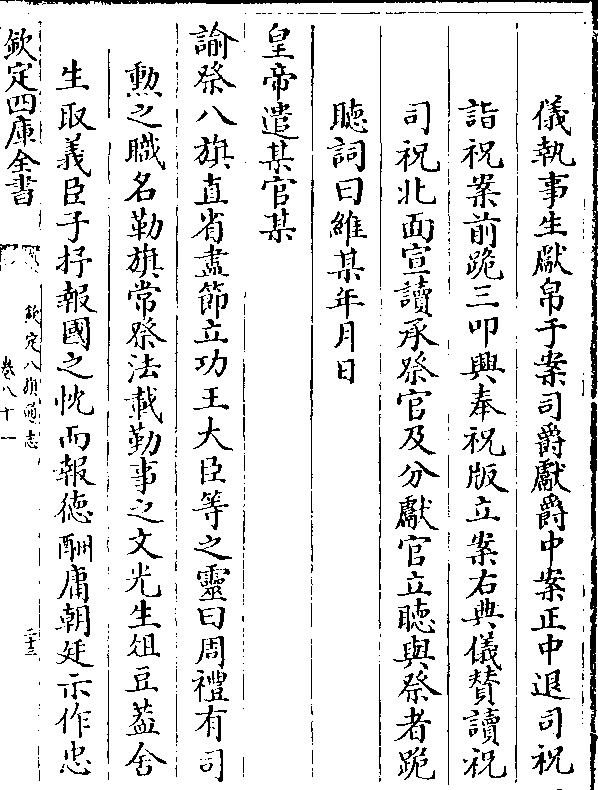 儀執事生獻帛于案司爵獻爵中案正中退司祝
詣祝案前跪三叩興奉祝版立案右典儀贊讀祝
司祝北面宣讀承祭官及分獻官立聽與祭者跪
聽詞曰維某年月日
皇帝遣某官某
諭祭八旗直省盡節立功王大臣等之靈曰周禮有司
勲之職名勒旗常祭法載勤事之文光生俎豆葢舍
生取義臣子抒報國之忱而報徳酬庸朝廷示作忠
欽定四庫全書
欽定八旗通志
卷八十一
二十三